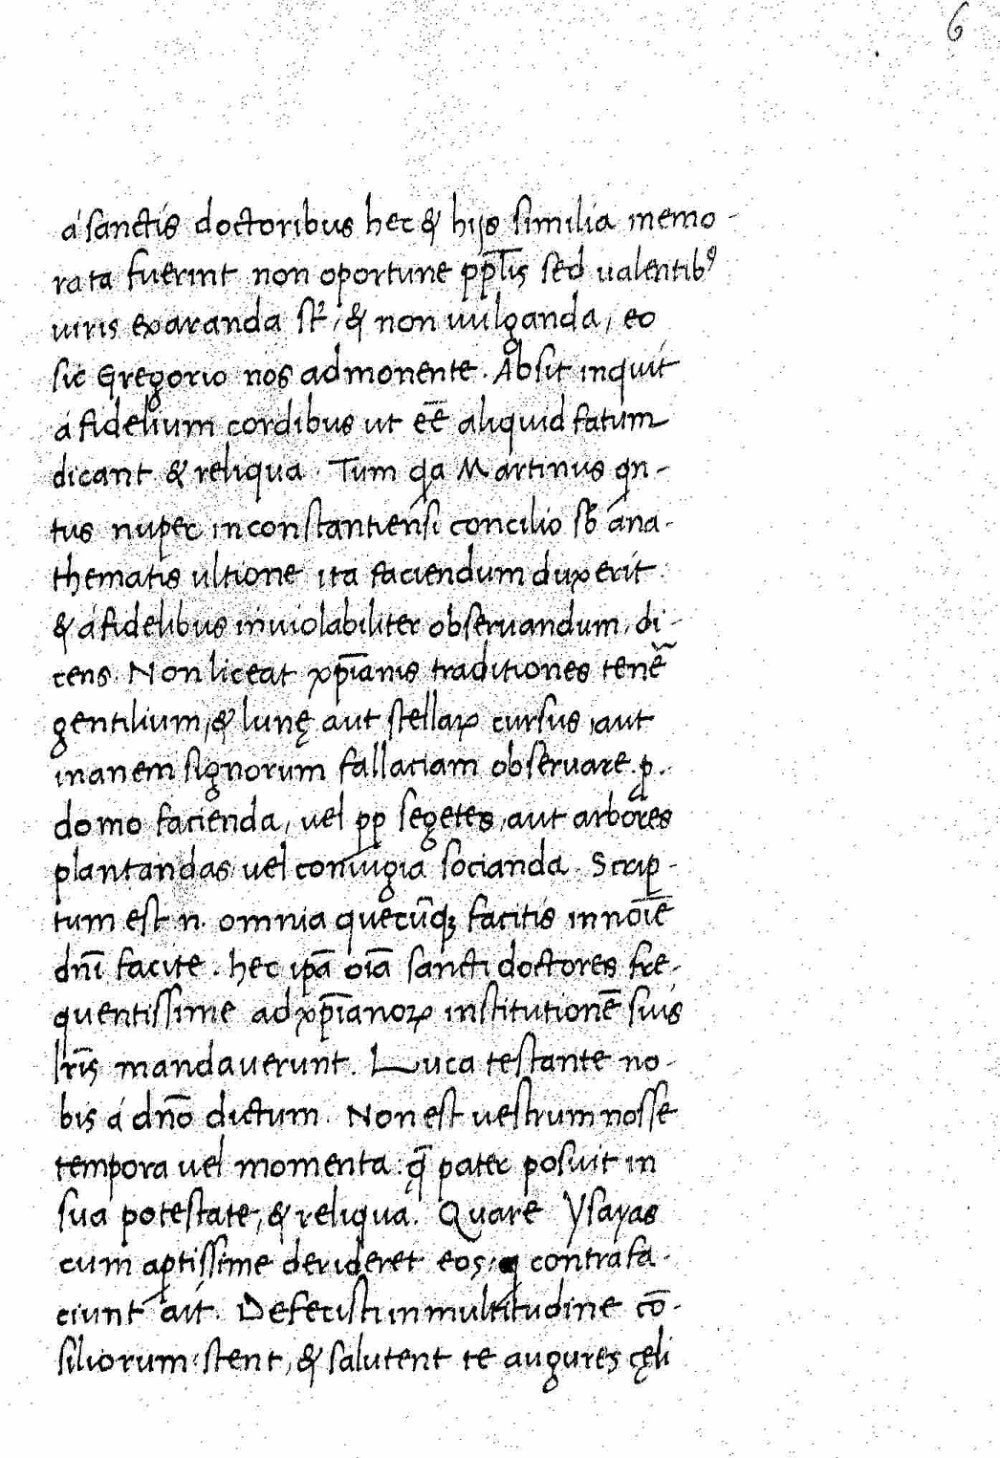 6
á sanctis doctoribus hec & hijs similia memo-
rata fuerint non oportune pp̅lis sed ualentibꝰ
uiris exaranda st̉, & non uulganda, eo
sic Gregorio nos admonente. Absit inquit
á fidelium cordibus ut ee̅ aliquid fatum
dicant & reliqua. Tum qa Martinus qn-
tus nuper in constantiensi concilio sb̅ ana-
thematis ultione ita faciendum duxerit
& á fidelibus inuiolabiliter obseruandum, di-
cens. Non liceat xp̅ianis traditiones tene᷉
gentilium, & lunę aut stellaꝝ cursus, aut
inanem signorum fallaciam obseruare. ꝓ.
domo facienda, uel ꝓp segetes, aut arbores
plantandas uel coniugia socianda. Scrip-
tum est n. omnia quecu̅qꝫ facitis in no̅ie̅
dn̅i facite. hec ip̅a oi̅a sancti doctores fre-
quentissime ad xp̅ianoꝝ institutione̅ suis
lr̅is mandauerunt. Luca testante no-
bis á dn̅o dictum. Non est uestrum nosse
tempora uel momenta: q̨̅ pater posuit in
sua potestate, & reliqua. Quare Ysayas
cum aptissime derideret eos, q contra fa-
ciunt ait. Defecisti in multitudine co̅-
siliorum: stent, & saluent te augures cęli